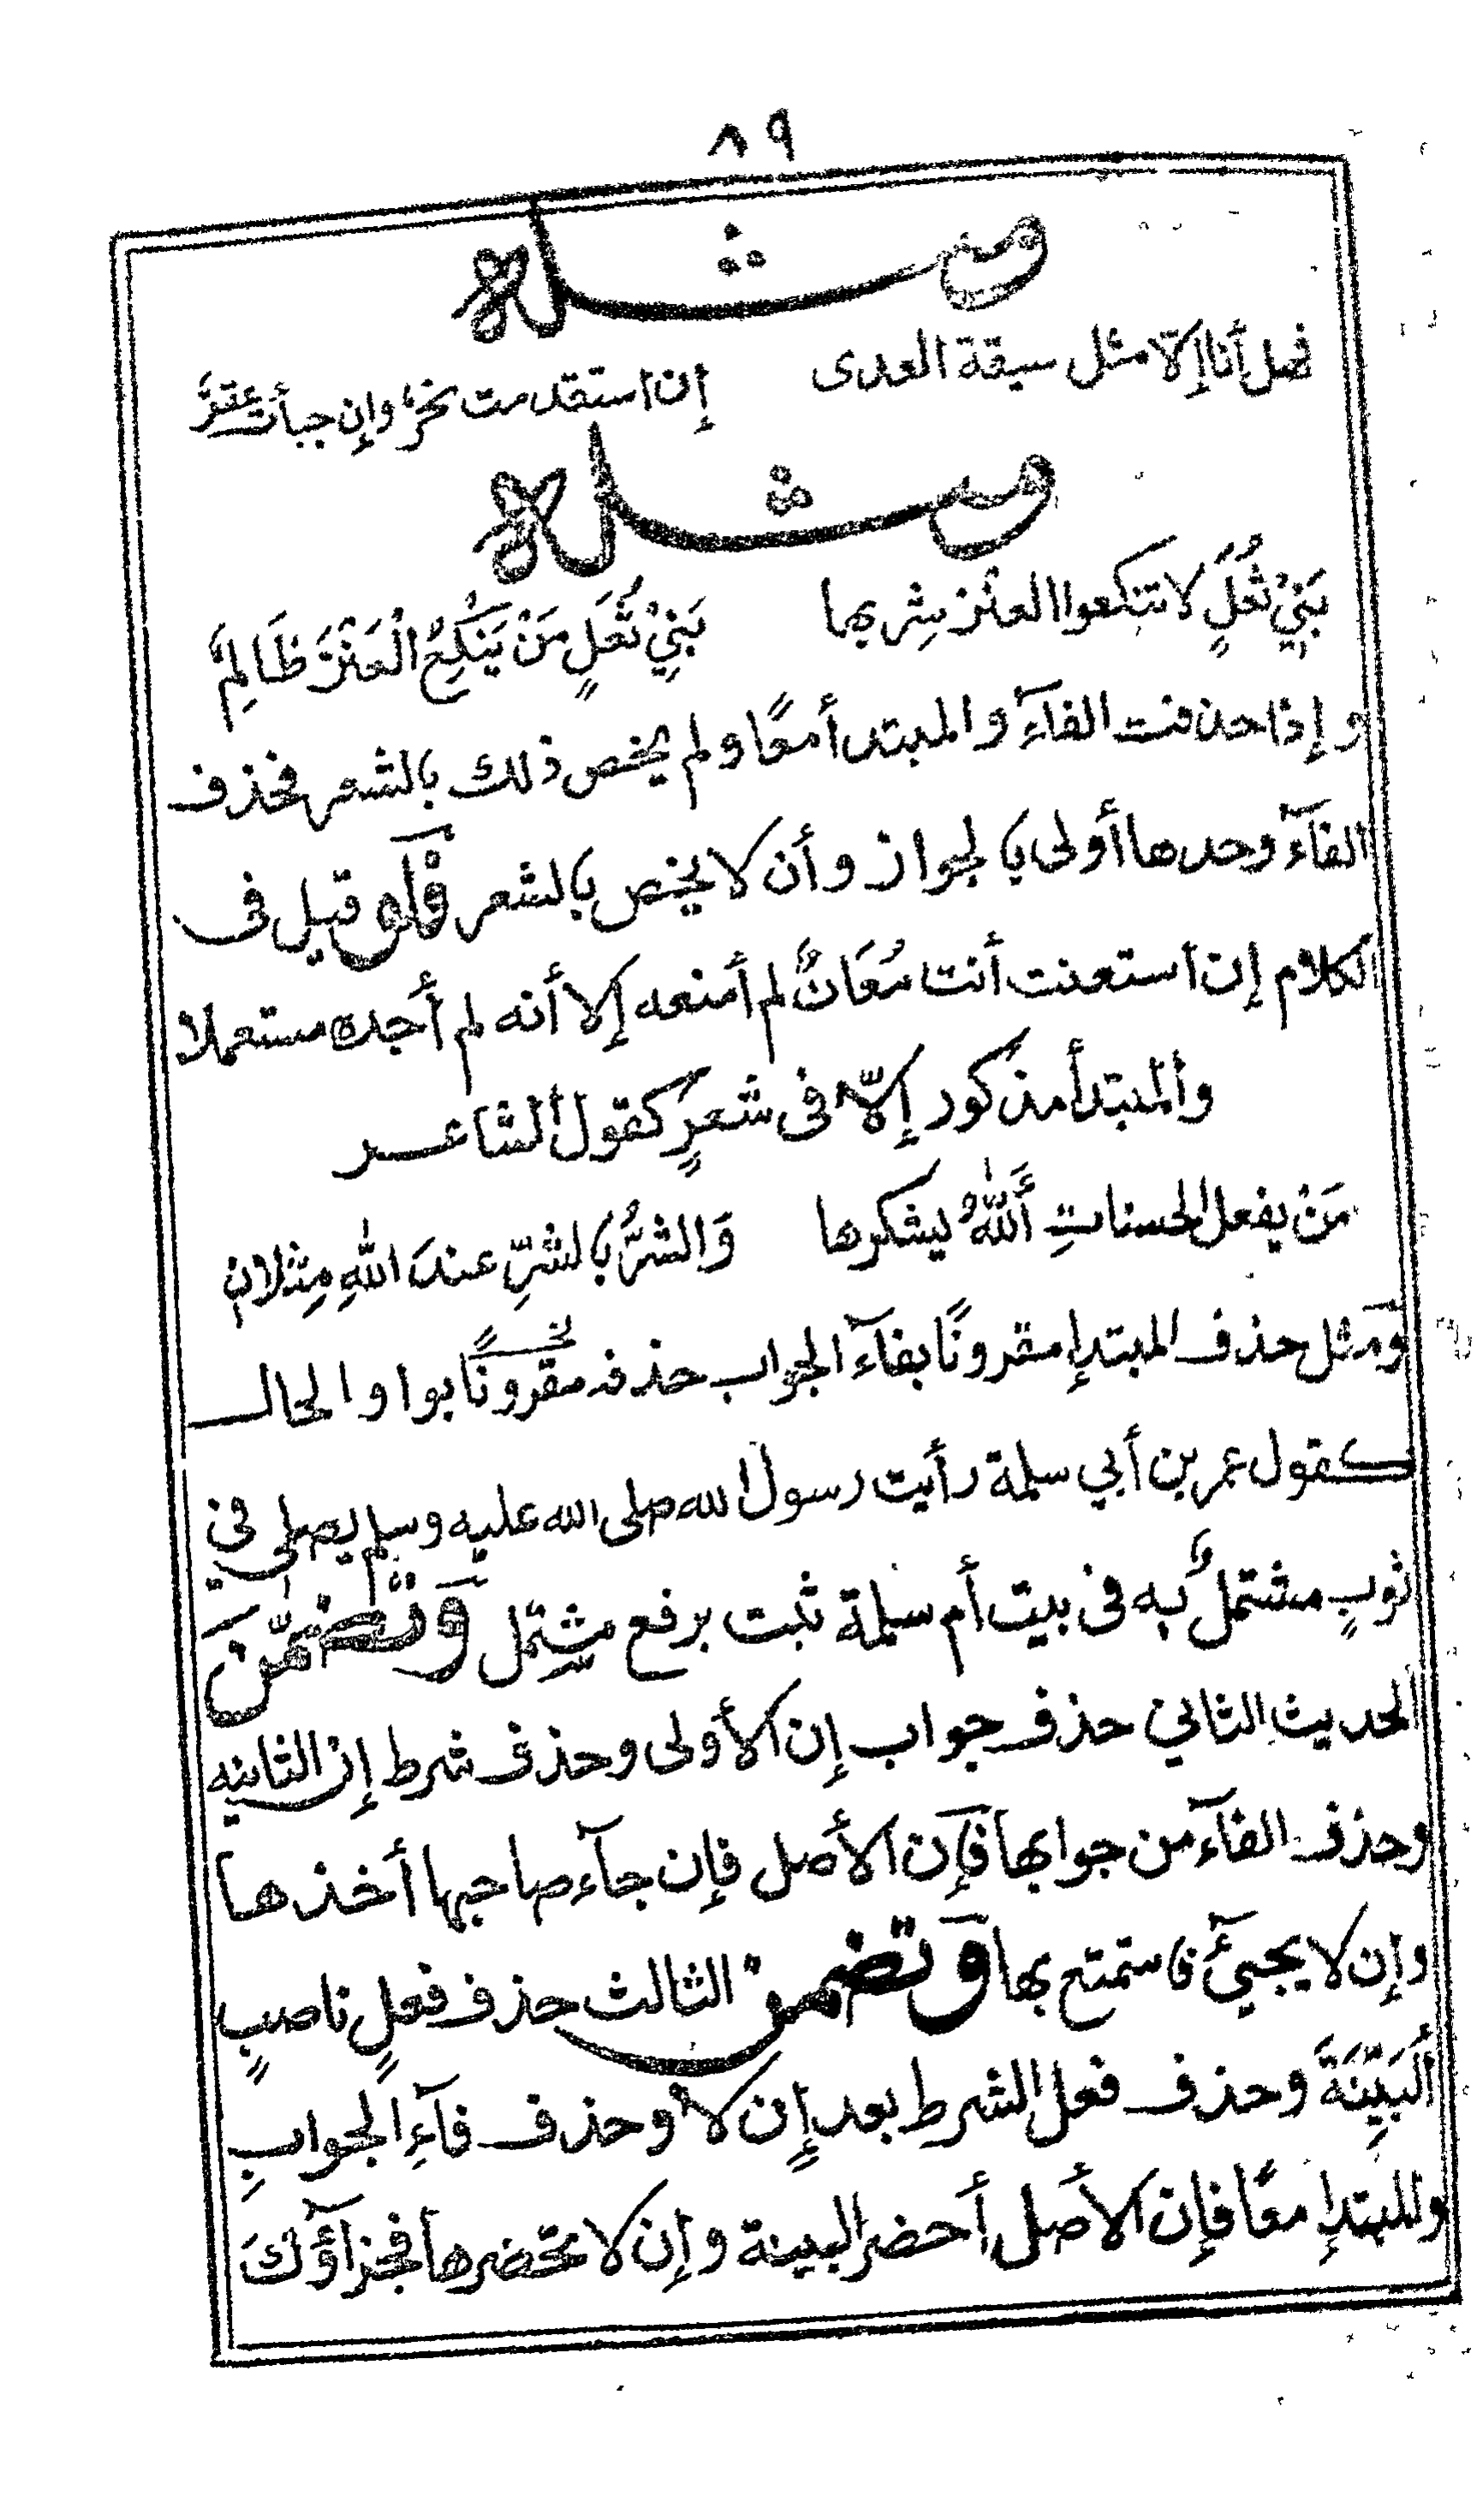 ٨٩
ومثله
فهل أنا إلا مثل سيقة العدى إن استقدمت نحرٌ وإن جبأت عقرُ
ومثله
بَنِيْ ثُعَلٍ لا تنكعوا العنْز شِربها بَنِيْ ثُعَلٍ مَنْ يَنْكَعِ الْعَنْزَ ظَالِمُ
وإذا حذفت الفآءَ والمبتدأ معًا ولم يخص ذلك بالشعر فحذف
الفآءَ وحدها أولى بالجواز وأن لا يخص بالشعر فلو قيل فى
الكلام إن استعنت أنت مُعَانٌ لم أمنعه إلا أنه لم أجده مستعملا
والمبتدأ مذكور إلّا فى شعرٍ كقول الشاعر
مَنْ يفعل الحسناتِ أَللّهُ يشكرها وَالشرُّ بالشرِّ عندَ اللهِ مِثلانِ
وَمثل حذف المبتدإ مقرونًا بفآء الجواب حذفه مقرونًا بواو الحال نحو
كقول عمر بن أبي سلمة رأيت رسول الله صلى الله عليه وسلم يصلى في
ثوبٍ مشتملٌ به فى بيت أم سلمة ثبت برفع مشتمل وَتضمّنَ
الحديث الثاني حذف جواب إن الأولى وحذف شرط إن الثانيه
وحذف الفآء من جوابها فإن الأصل فإن جآء صاحبها أخذها
وإن لا يجيْ فاستمتع بها وتضمن الثالث حذف فعلٍ ناصبٍ
ألبَيِّنَةَ وحذف فعل الشرط بعد إن لا وحذف فآءِ الجوابِ
والمبتدإ معًا فإن الأصل أحضر البينة وإن لا تحضرها فجزآؤكَ